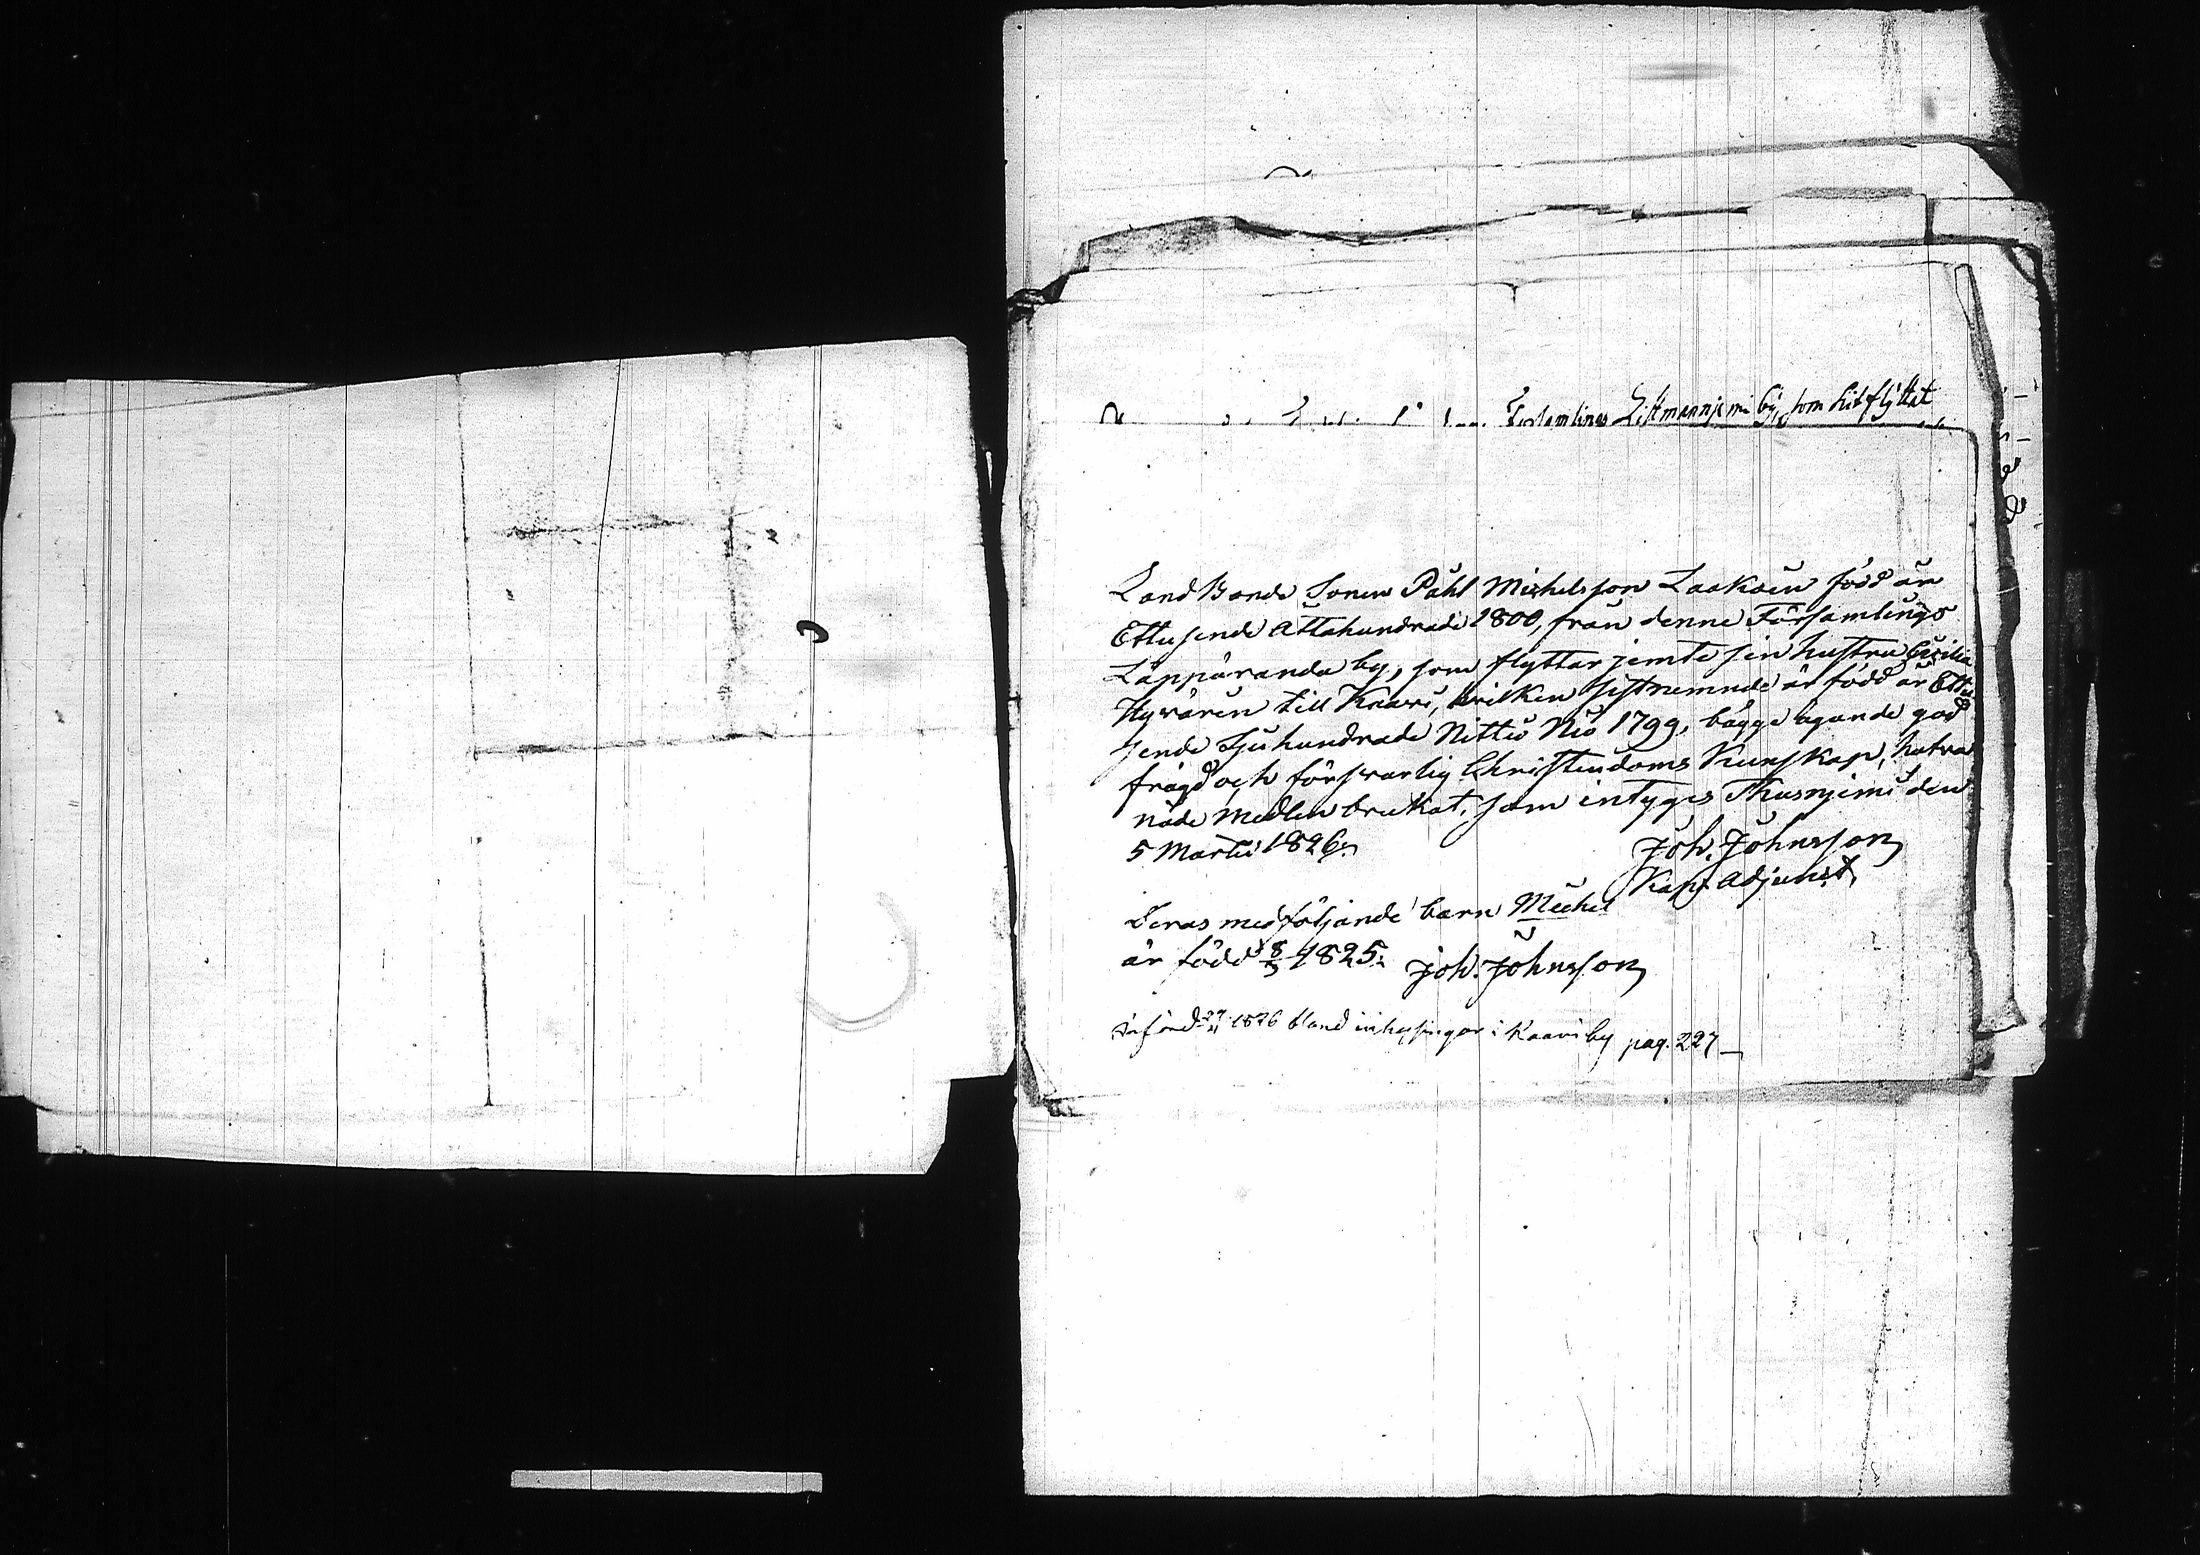 Listmannjemi by, som hit flyttat
Land Bonde Sonen Påhl Michelsson Laakoin född år
Ettusende Åttahundrade 1800, från denne Församlings
Läppäranda by, som flyttar jemte sin hustru Cecilia
Hyvärin till Kaavi, hvilken sistnemnde är född år Ettu
sende Sjuhundrade Nittio Nio 1799, bägge ägande god
frägd och försvarlig Christendoms Kunskap, hafva
nåde medlen brukat, som intyges Thusnjemi den
5 Martii 1826.
Joh. Johnsson
Kap. adjunct.
Deras medföljande barn Michel
är född 8/3 1825. Joh. Johnsson
Införd 27/11 1826 bland inhysingar i Kaavi by pag. 227